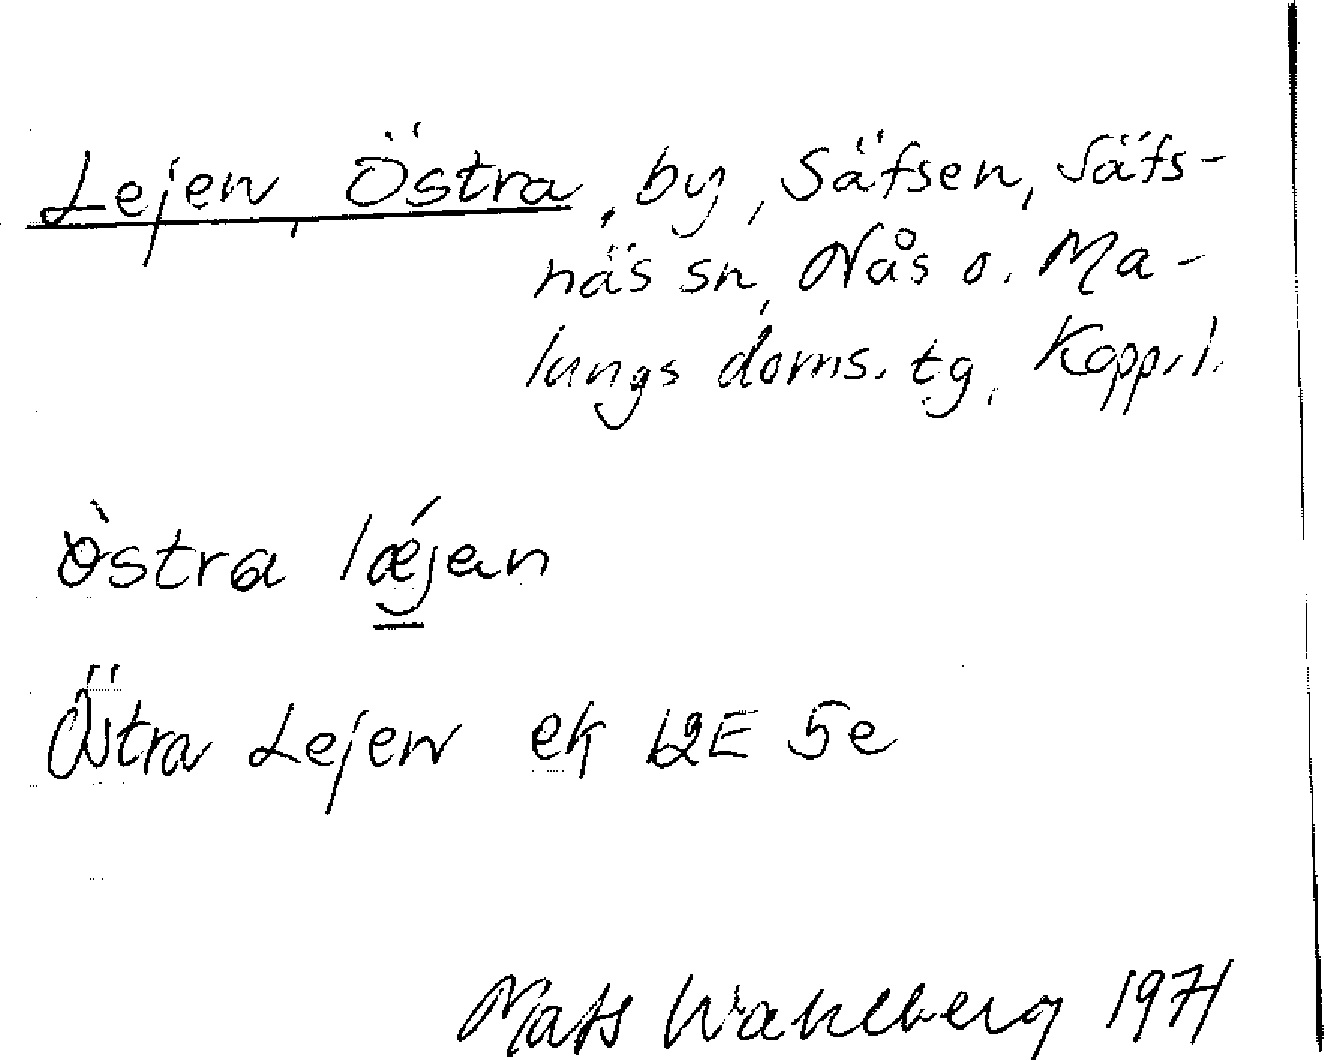 Lejen, Östra, by, Säfsen, Säfs-
näs sn, Nås o. Ma-
lungs doms. tg, Kopp. l.
òstra lǽjan
Östra Lejen ek 12E 5e
Mats Wahlberg 1971